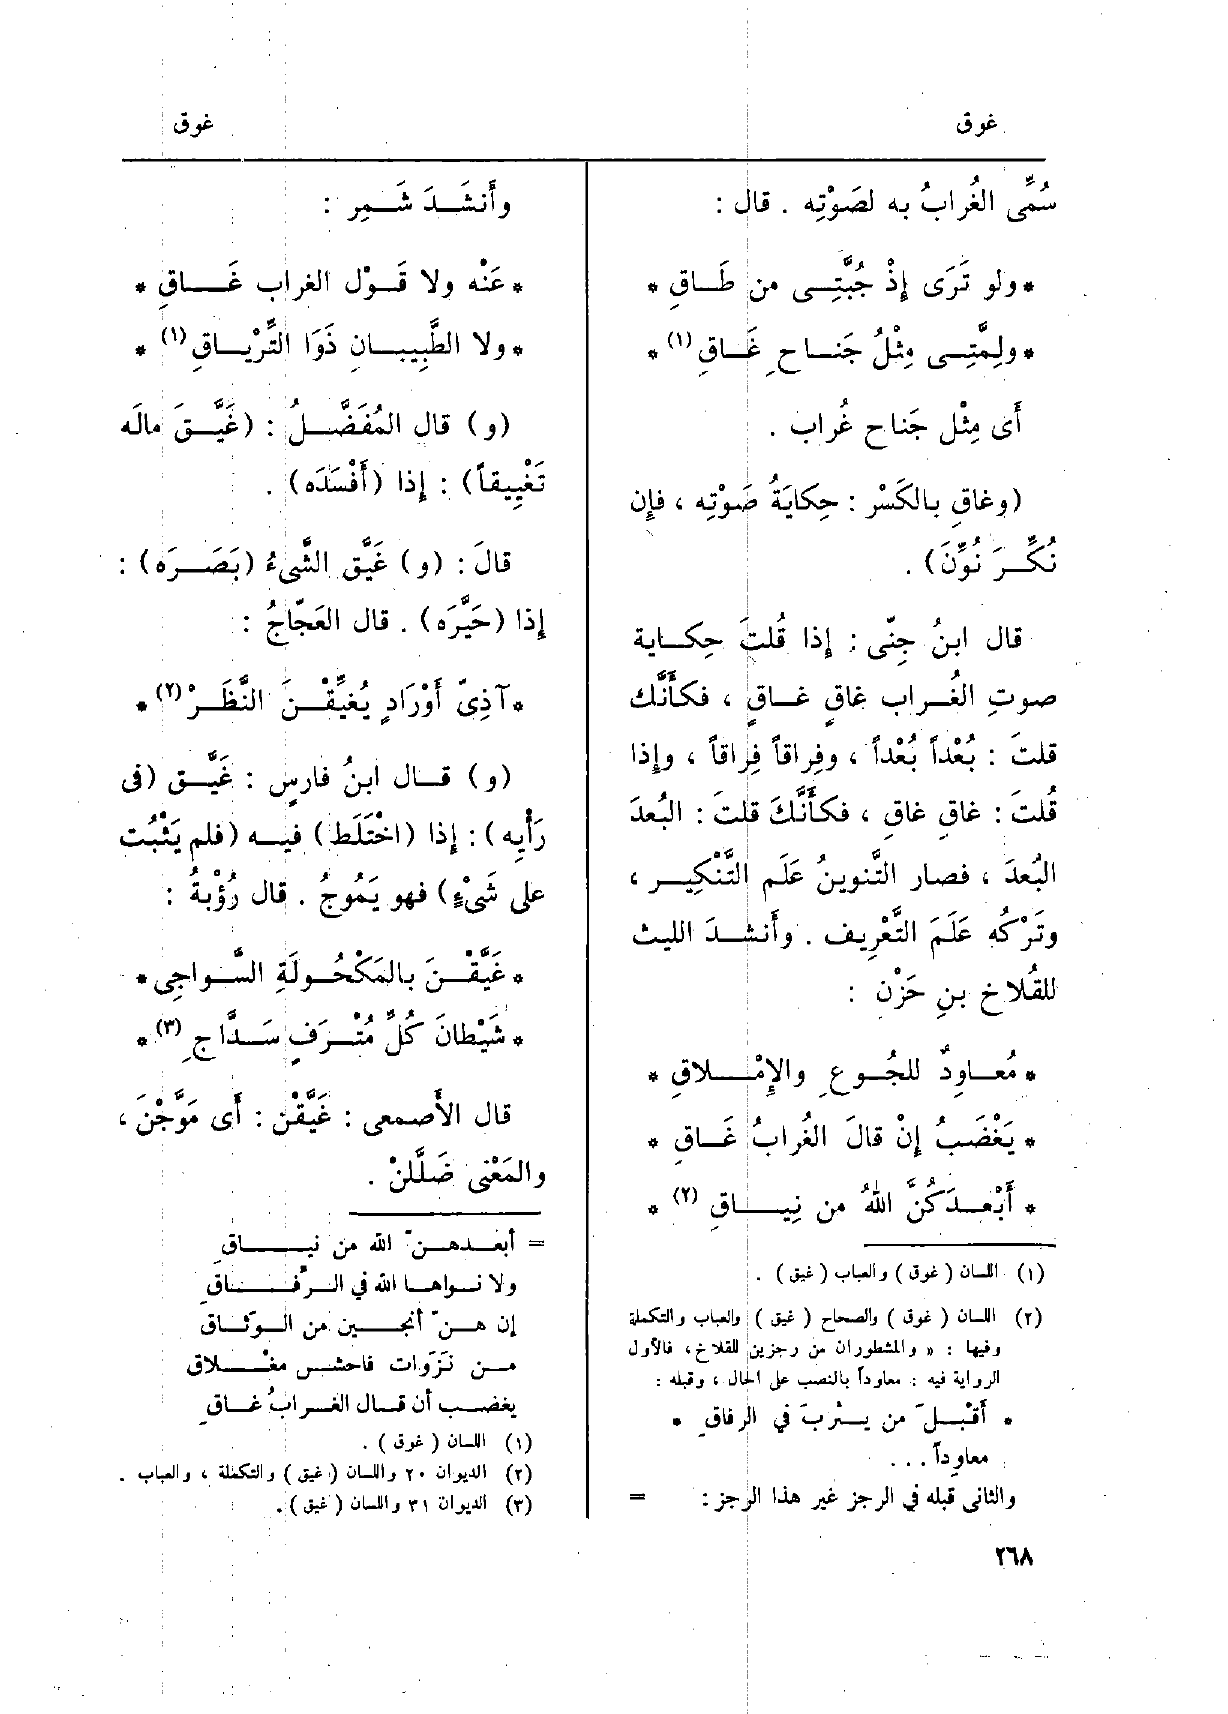 غوق
غوق
سُمِّى الغُرابُ به لصَوْتِه . قال :
* ولو تَرَى إِذْ جُبَّتِــى من طَــاقِ *
* ولِمَّتِــى مِثْلُ جَنــاحِ غَــاقِ (١) *
أَى مِثْل جَناح غُراب .
(وغاقِ بالكَسْر : حِكايَةُ صَوْتِه ، فإِن
نُكِّــرَ نُوِّنَ) .
قال ابنُ جِنِّى : إِذا قُلتَ حِكــاية
صوتِ الغُــراب غاقٍ غــاقٍ ، فكأَنَّك
قلتَ : بُعْداً بُعْداً ، وفِراقاً فِراقاً ، وإِذا
قُلتَ : غاقِ غاقِ ، فكأَنَّكَ قلتَ : البُعدَ
البُعدَ ، فصار التَّنوينُ عَلَم التَّنْكِيــر ،
وتَرْكُه عَلَمَ التَّعْرِيف . وأَنشــدَ الليث
للقُلاخِ بنِ حَزْنٍ :
* مُعــاوِدٌ للجُــوعِ والإِمْــلاقِ *
* يَغْضَبُ إِنْ قالَ الغُرابُ غَــاقِ *
* أَبْعــدَكُنَّ اللهُ من نِيــاقِ (٢) *
(١) اللسان ( غوق ) والعباب ( غيق ) .
(٢) اللسان ( غوق ) والصحاح ( غيق ) والعباب والتكملة
وفيها : « والمشطوران من رجزين للقلاخ ، فالأول
الرواية فيه : معاوداً بالنصب على الحال ، وقبله :
* أقْبــلَ من يــثْربَ في الرفاقِ *
معاوِداً . . .
والثانى قبله في الرجز غير هذا الرجز : =
وأَنشَــدَ شَــمِر :
* عَنْه ولا قَــوْل الغراب غَــاقِ *
* ولا الطَّبِيبــانِ ذَوَا التِّرْيــاقِ (١) *
(و) قال المُفَضَّــلُ : (غَيَّــقَ مالَه
تَغْيِيقاً) : إِذا (أَفْسَدَه) .
قالَ : (و) غَيَّق الشَّىءُ (بَصَــرَه) :
إِذا (حَيَّرَه) . قال العَجّاجُ :
* آذِىّ أَوْرَادٍ يُغيِّقْــنَ النَّظَــرْ (٢) *
(و) قــال ابنُ فارِسٍ : غَيَّــق (فى
رَأْيِه) : إِذا (اخْتَلَط) فيــه (فلم يَثْبُت
على شَىْءٍ) فهو يَمُوجُ . قال رُؤْبةُ :
* غَيَّقْــنَ بالمَكْحُــولَةِ السَّــواجِى *
* شَيْطانَ كُلِّ مُتْــرَفٍ سَــدَّاجِ (٣) *
قال الأَصمعى : غَيَّقْن : أَى مَوَّجْنَ ،
والمَعْنى ضَلَّلنْ .
= أبعــدهــنّ الله من نيــاقِ
ولا نــواهــا الله في الــرِّفــاقِ
إن هــنّ أنجــين من الــوثــاقِ
مــن نَزَوات فاحشــى مغــلاق
يغضــب أن قــال الغــرابُ غــاقِ
(١) اللسان ( غوق ) .
(٢) الديوان ٢٠ واللسان ( غيق ) والتكملة ، والعباب .
(٣) الديوان ٣١ واللسان ( غيق ) .
٢٦٨